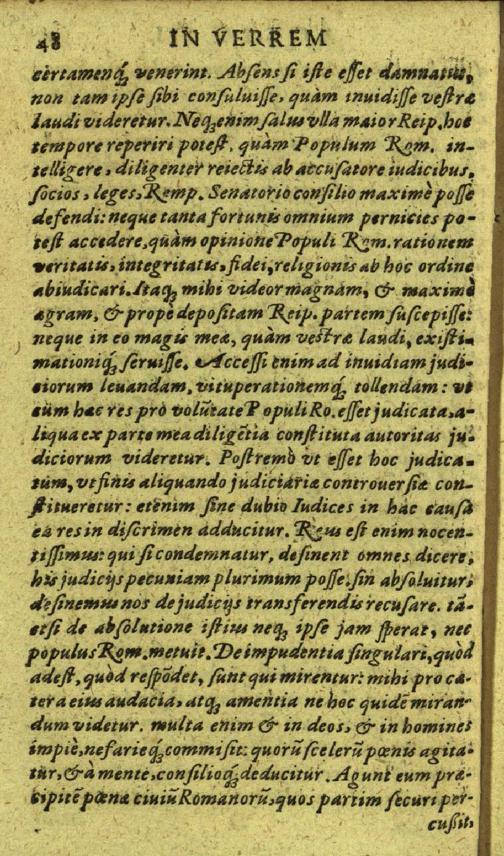 48 IN VERREM
certamenq́; venerint. Absens si iste esset damnatus,
non tam ipse sibi consuluisse, quàm inuidisse vestræ
laudi videretur. Neq; enim salus vlla maior Reip. hoc
tempore reperiri potest, quàm Populum Rom. in-
telligere, diligenter reiectis ab accusatore iudicibus,
socios, leges, Remp. Senatorio consilio maximè posse
defendi: neque tanta fortunis omnium pernicies po-
test accedere, quàm opinione Populi Rom. rationem
veritatis, integritatis, fidei, religionis ab hoc ordine
abiudicari. Itaq; mihi videor magnam, & maximè
ægram, & propè depositam Reip. partem suscepisse:
neque in eo magis meæ, quàm vestræ laudi, existi-
mationiq́; seruisse. Accessi enim ad inuidiam judi-
ciorum leuandam, vituperationemq́; tollendam: vt
cùm hæc res pro volūtate Populi Ro. esset judicata, a-
liqua ex parte mea diligētia constituta autoritas ju-
diciorum videretur. Postremò vt esset hoc judica-
tum, vt finis aliquando judiciariæ controuersiæ con-
stitueretur: etènim sine dubio Iudices in hac causa
ea res in discrimen adducitur. Reus est enim nocen-
tissimus: qui si condemnatur, desinent omnes dicere,
his judicijs pecuniam plurimum posse: sin absoluitur,
desinemus nos de judicijs transferendis recusare. tā-
etsi de absolutione istius neq; ipse jam sperat, nec
populus Rom. metuit. De impudentia singulari, quòd
adest, quòd respōdet, sunt qui mirentur: mihi pro cæ-
tera eius audacia, atq; amentia ne hoc quidē miran
dum videtur. multa enim & in deos, & in homines
impiè, nefarieq́; commisit: quorū scelerū pœnis agita-
tur, & à mente, consilioq́; deducitur. Agunt eum præ-
cipitē pœnæ ciuiū Romanorū, quos partim securi per-
cussit,